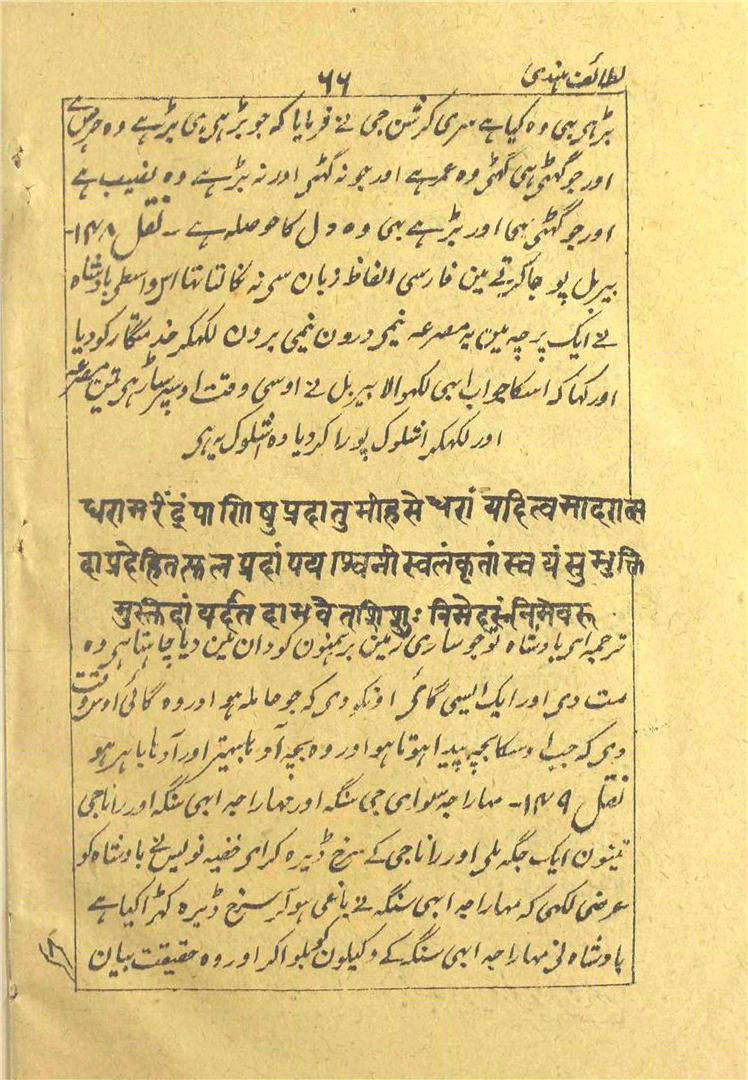 لطائف ہندی
۶۶
بڑہی ہی وہ کیا ہے سری کرشن جی نے فرمایا کہ جو بڑہی ہی بڑہے وہ حرص ہے
اور جو گھٹی ہی گھٹی وہ عمر ہے اور جو نہ گھٹی اور نہ بڑہے وہ نصیب ہے
اور جو گھٹی ہی اور بڑہے ہی وہ دل کا حوصلہ ہے ۔ نقل ۱۴۸-
بیربل پوجا کرتے مین فارسی الفاظ زبان سی نہ نکالتا تہا اس واسطی بادشاہ
نے ایک پرچہ مین یہ مصرعہ نیمی درون نیمی برون لکھکر خدمتگار کو دیا
اور کہا کہ اسکا جواب ابہی لکھوالا بیربل نے اوسی وقت اوسپر ساڑہی تین مصرعہ
اور لکھکر اشلوک پورا کر دیا وہ اشلوک یہ ہی
धरामरींद्रं पाणिषु प्रदातुमीहसे धरां यहित्वमादरात्त
दा प्रदेहि तत्फल प्रदां पयश्विनी स्वलंकृतां स्वयं सुमुक्ति
मुक्तिदां यर्दत
ترجمہ ای بادشاہ تو جو ساری زمین برہمنون کو دان مین دیا چاہتا ہی وہ
مت دی اور ایک ایسی گائی اونکو دی کہ جو حاملہ ہو اور وہ گائی اوس وقت
دی کہ جب اوسکا بچہ پیدا ہوتا ہو اور وہ بچہ آدہا بہیتر اور آدہا باہر ہو
نقل ۱۴۹- مہاراجہ سوای جی سنگہ اور مہاراجہ ابہی سنگہ اور رانا جی
تینون ایک جگہ ملی اور رانا جی کے سرخ ڈیرہ خفیہ نویس نے بادشاہ کو
عرضی لکھی کہ مہاراجہ ابہی سنگہ نے باغی ہو کر سرخ ڈیرہ کہڑا کیا ہے
بادشاہ نی مہاراجہ ابہی سنگہ کے وکیلون کو بلوا کر اور وہ حقیقت بیان